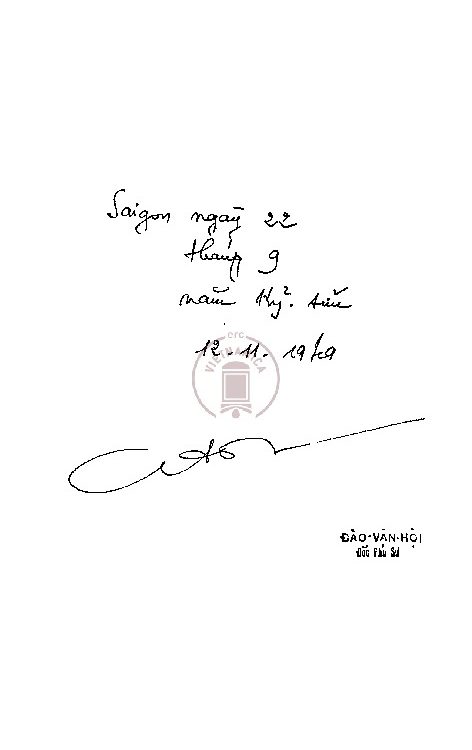 Saigon ngày 22
tháng 9
năm Kỷ-sửu
12-11-1949
erc
VIETNAMICA
ĐÀO-VĂN-HỘI
Đốc Phủ Sứ